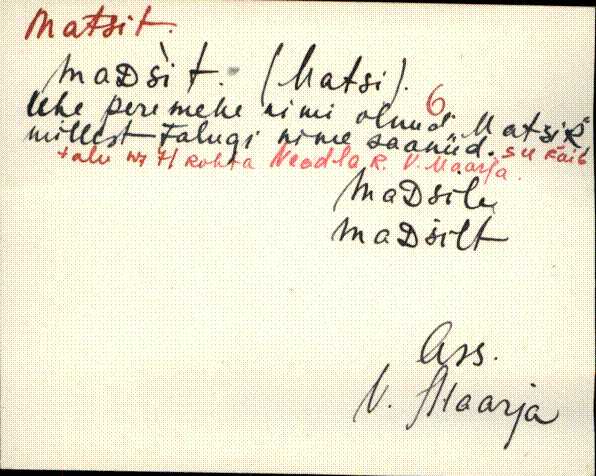 Matsit.
maDsi t. (Matsi).
6
Ühe peremehe nimi olnud Matsik
millest talugi nime saanud. su käib
talu nr 71 kohta Neodla k. V. Maarja.
maDsile
maDsilt
Ass.
V. Maarja